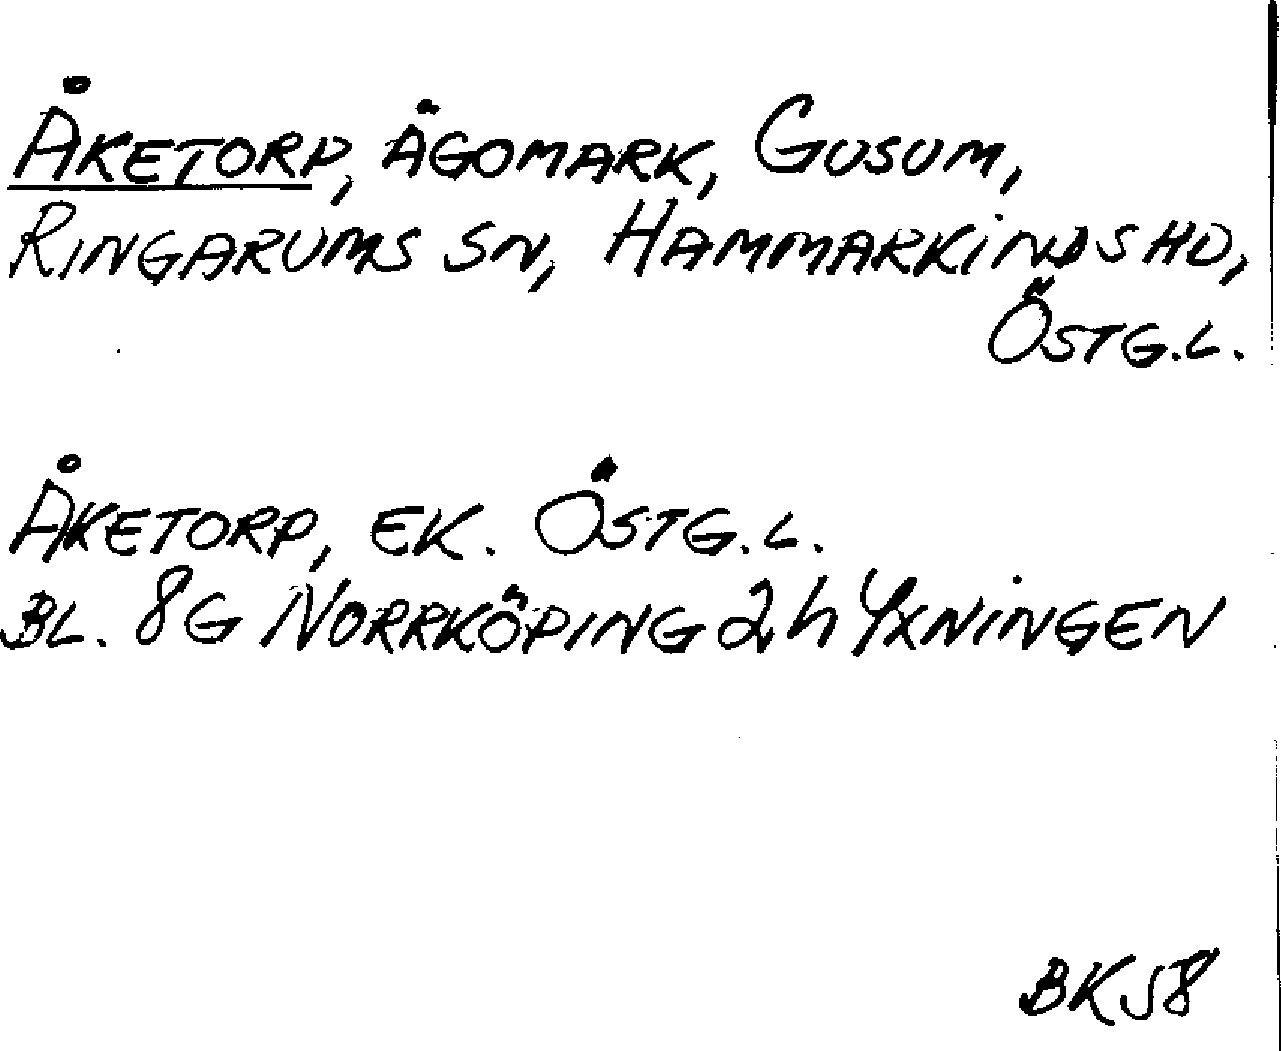 ÅKETORP, ÄGOMARK, GUSUM,
RINGARUMS SN, HAMMARKINDS HD,
ÖSTG.L.
ÅKETORP, EK. ÖSTG.L.
BL. 8G NORRKÖPING 2h YXNINGEN
BK58